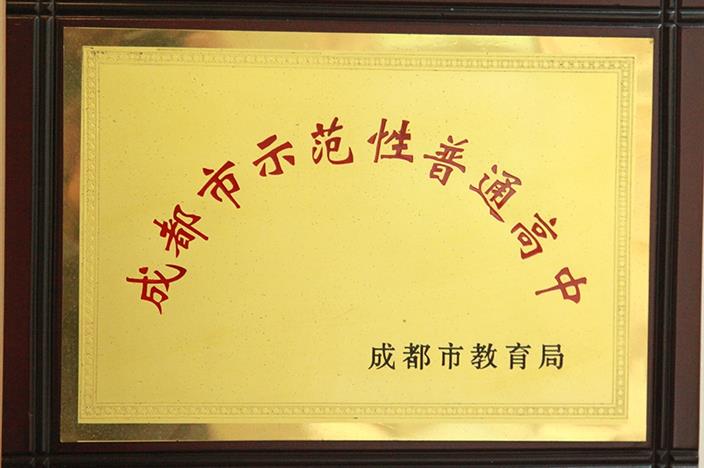 成都市示范性普通高中
成都市教育局